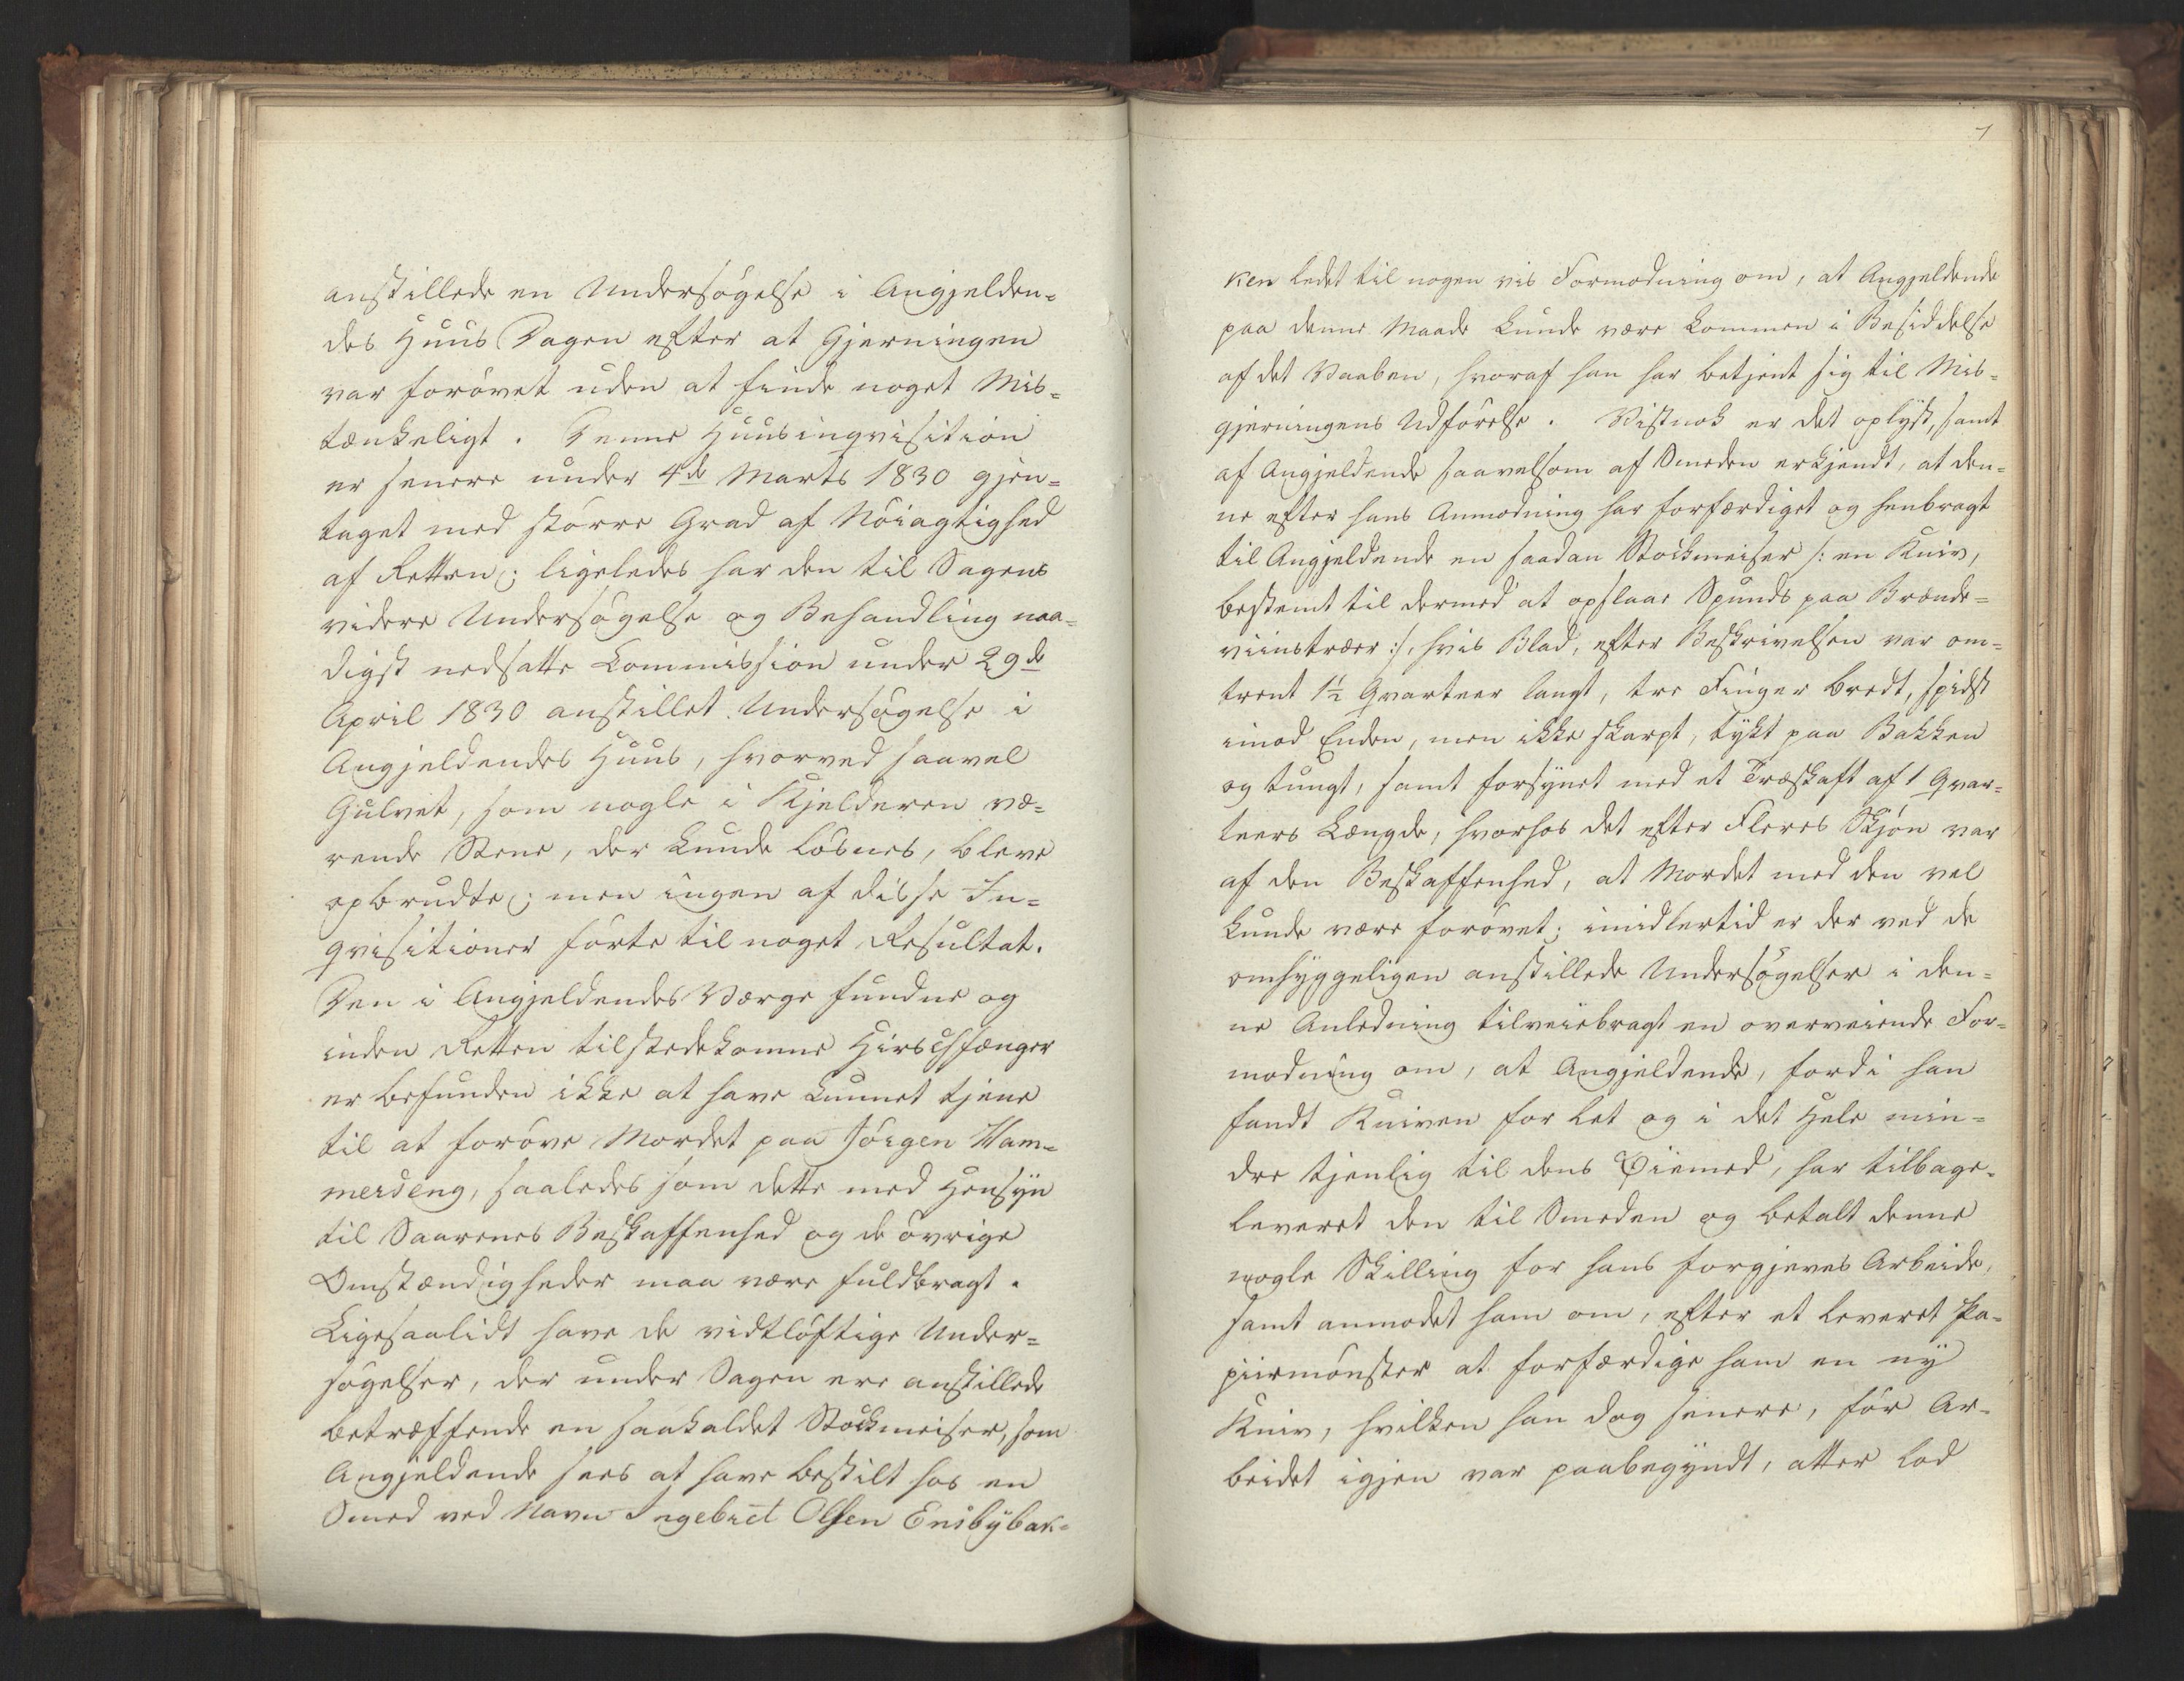 anstillede en Undersøgelse i Angjelden=
des Huus Dagen efter at Gjerningen
var forøvet uden at finde noget Mis=
tænkeligt. Denne Huusinqvisition
er senere under 4de Marts 1830 gjen=
taget med større Grad af Nöiagtighed
af Retten; ligeledes har den til Sagens
videre Undersøgelse og Behandling naa=
digst nedsatte Commission under 29de
April 1830 anstillet Undersøgelse i
Angjeldendes Huus, hvorved saavel
Gulvet, som nogle i Kjelderen væ=
rende Stene, der kunde løsnes, bleve
opbrudte; men ingen af disse In=
qvisitioner førte til noget Resultat.
Den i Angjeldendes Værge fundne og
inden Retten tilstedekomne Hirschfænger
er befunden ikke at have kunnet tjene
til at forøve Mordet paa Jörgen Ham=
merdeng, saaledes som dette med Hensyn
til Saarenes Beskaffenhed og de øvrige
Omstændigheder maa være fuldbragt.
Ligesaalidt have de vidtløftige Under=
søgelser, der under Sagen ere anstillede
betræffende en saakaldet Stockmeiser, som
Angjeldende sees at have bestilt hos en
Smed ved Navn Ingebret Olsen Enibÿbak=
7
ken ledet til nogen vis Formodning om, at Angjeldende
paa denne Maade kunde være kommen i Besiddelse
af det Vaaben, hvoraf han har betjent sig til Mis=
gjerningens Udførelse. Vistnok er det oplyst, samt
af Angjeldende saavelsom af Smeden erkjendt, at den=
ne efter hans Anmodning har forfærdiget og henbragt
til Angjeldende en saadan Stockmeiser /: en Kniv,
bestemt til dermed at opslaae Spunds paa Brænde=
viinstræer :/, hvis Blad, efter Beskrivelsen var om=
trent 1½ Qvarteer langt, tre Finger bredt, spidst
imod Enden, men ikke skarpt, tykt paa Bakken
og tungt, samt forsynet med et Træskaft af 1 Qvar=
teers Længde, hvorhos det efter Fleres Skjøn var
af den Beskaffenhed, at Mordet med den vel
kunde være forøvet; imidlertid er der ved de
omhyggeligen anstillede Undersøgelser i den=
ne Anledning tilveiebragt en overveiende For=
modning om, at Angjeldende, fordi han
fandt Kniven for let og i det Hele min=
dre tjenlig til dens Öiemed, har tilbage=
leveret den til Smeden og betalt denne
nogle Skilling for hans forgjeves Arbeide,
samt anmodet ham om, efter et leveret Pa=
piirmønster at forfærdige ham en ny
Kniv, hvilken han dog senere, før Ar=
beidet igjen var paabegyndt, atter lod